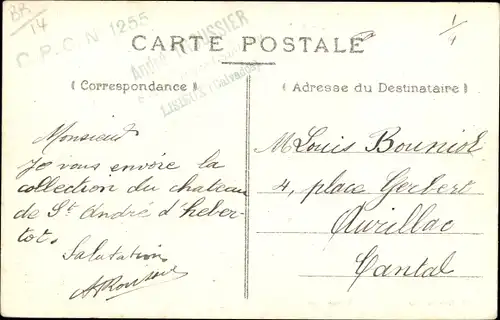 BR
14
C.P.C. N 1255
André
LISIEUX (Calvados)
CARTE POSTALE
1/1
Correspondance
Adresse du Destinataire
Monsieur
Je vous envoie la
collection du chateau
de St André d'heber-
tot.
Salutation
M Louis Bouniol
4, place Gerbert
Aurillac
Cantal